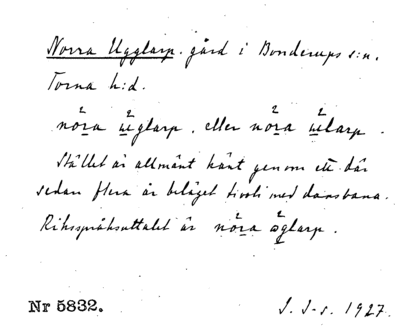 Norra Ugglarp. gård i Bonderups s:n.
Torna h:d.
nŏ̤ra ω̤glarp. eller nŏ̤ra ω̤larp.
Stället är allmänt känt genom ett där
sedan flera år beläget tivoli med dansbana.
Riksspråksuttalet är nŏ̤ra ω̤glarp.
Nr 5832.
J. J-s. 1927.